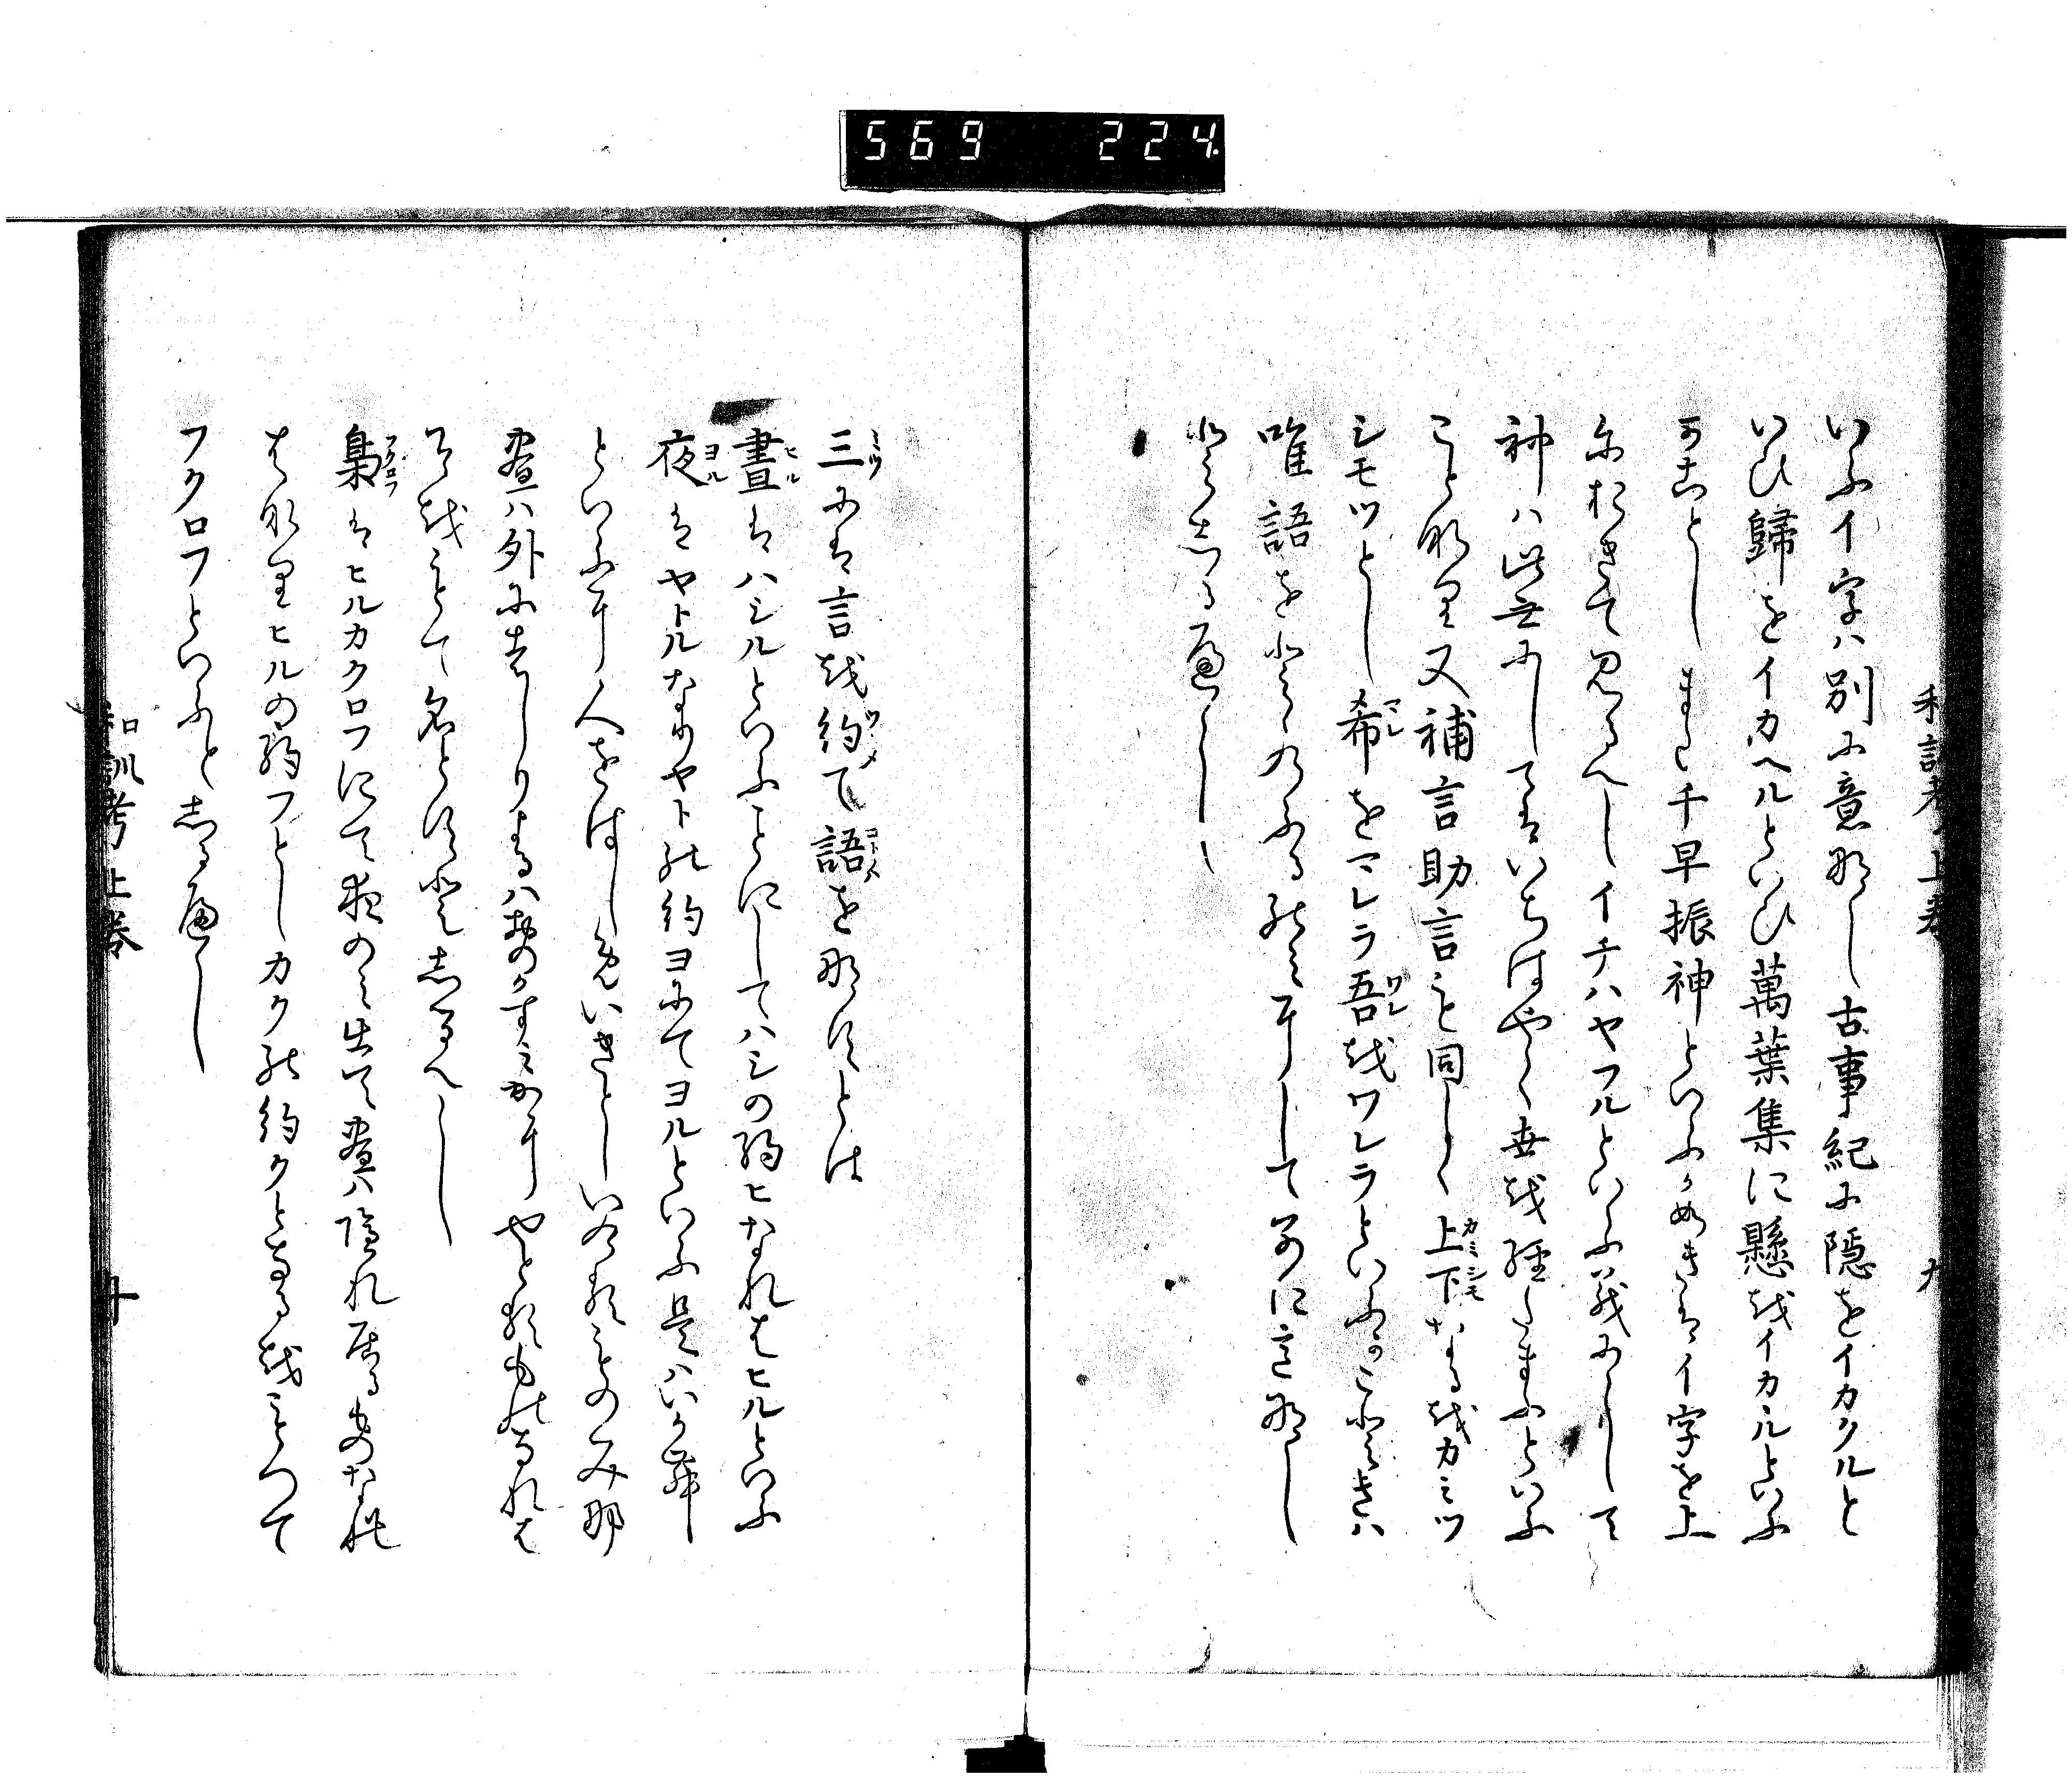 569 224
和訓考 上巻 九
いふイ字ハ別に意なし古事紀に隠をイカクルと
いひ歸をイカヘルといひ萬葉集に懸をイカルといふ
かことしまた千早振神といふか如きはイ字を上
におきて見るへしイチハヤフルといふ義にして
神ハ此世にしてはいちはやく世を経たまふといふ
ことなり又補言助言も同しく上下なるをカミツ
シモツとし希をマレラ吾をワレラといふかことき八
唯語をととのふるのみにして別に意なし
としるへし
三には言を約て語をなすとは
晝はハシルといふことにしてハシの約ヒなれはヒルといふ
夜はヤトルなりヤトの約ヨにてヨルといふ是ハいかに
といふに人をはしめいきとしいけるもののみな
晝ハ外にはしりよるハおのかすみかにやとるものなれは
それをもて名とすとしるへし
梟はヒルカクロフにて夜のみ出て晝ハ隠れ居るものなれ
はなりヒルの約フとしカクの約クとなるをもつて
フクロフといふとしるへし
和訓考 上巻 十